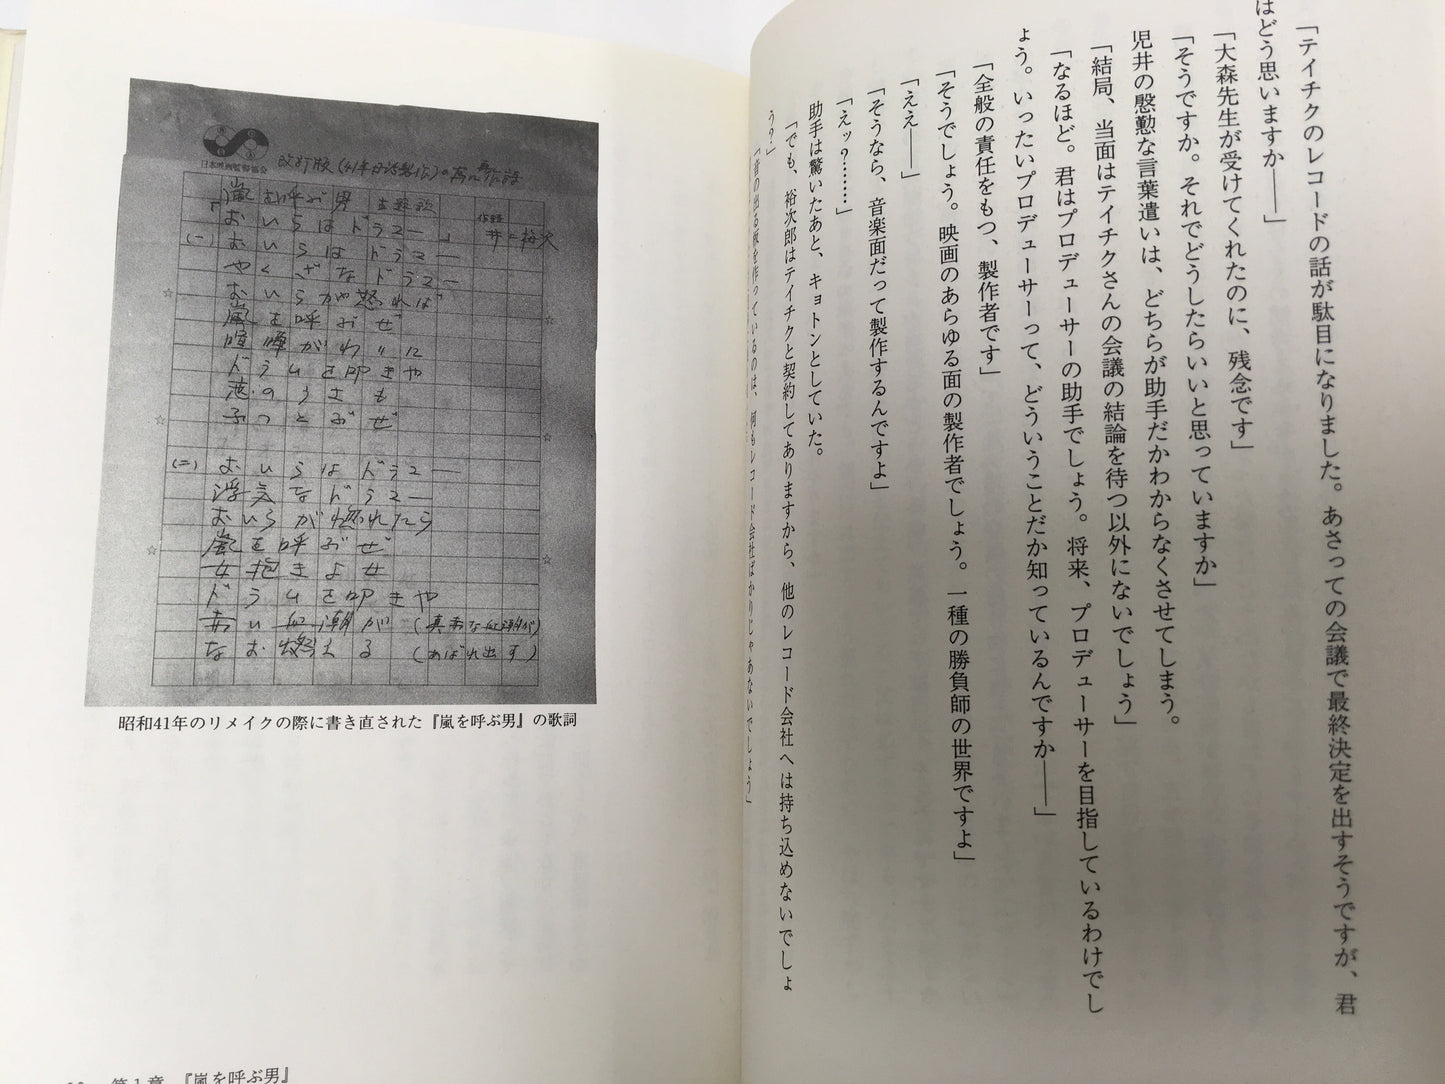 「テイチクのレコードの話が駄目になりました。あさっての会議で最終決定を出すそうですが、君
はどう思いますか――」
「大森先生が受けてくれたのに、残念です」
「そうですか。それでどうしたらいいと思っていますか」
児井の慇懃な言葉遣いは、どちらが助手だかわからなくさせてしまう。
「結局、当面はテイチクさんの会議の結論を待つ以外にないでしょう」
「なるほど。君はプロデューサーの助手でしょう。将来、プロデューサーを目指しているわけでし
ょう。いったいプロデューサーって、どういうことだか知っているんですか――」
「全般の責任をもつ、製作者です」
「そうでしょう。映画のあらゆる面の製作者でしょう。一種の勝負師の世界ですよ」
「ええ――」
「そうなら、音楽面だって製作するんですよ」
「えッ?………」
助手は驚いたあと、キョトンとしていた。
「でも、裕次郎はテイチクと契約してありますから、他のレコード会社へは持ち込めないでしょ
う?」
「音の出る板を作っているのは、何もレコード会社ばかりじゃあないでしょう」
日本映画監督協会
改訂版(41年日活製作)の為に再作詩
「嵐を呼ぶ男 主題歌
おいらはドラマー」
作詩
井上裕次
(一)おいらはドラマー
やくざなドラマー
おいらが怒れば
嵐を呼ぶぜ
喧嘩がわりに
ドラムを叩きや
恋のうさも
ふっとぶぜ
(二)おいらはドラマー
浮気なドラマー
おいらが惚れたら
嵐を呼ぶぜ
女抱きよせ
ドラムを叩きや
赤い血潮が(真赤な血潮が)
なお燃える(あばれ出す)
昭和41年のリメイクの際に書き直された『嵐を呼ぶ男』の歌詞
第1章 『嵐を呼ぶ男』